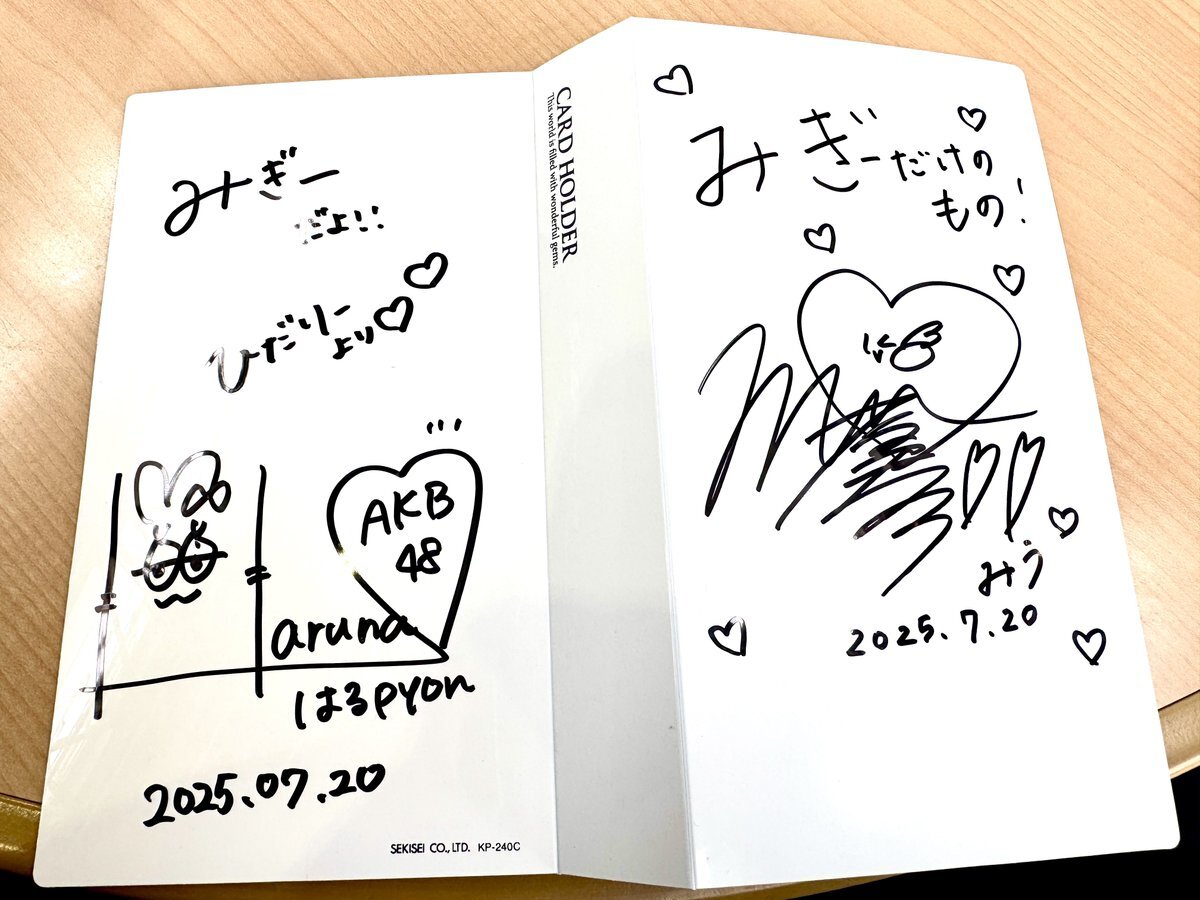 みぎー
だよ!!
ひだりー
より♡♡
AKB
48
aruna
はるpyon
2025.07.20
SEKISEI CO., LTD. KP-240C
CARD HOLDER
This world is filled with wonderful gems.
みぎーだけの
もの!
みう
2025.7.20